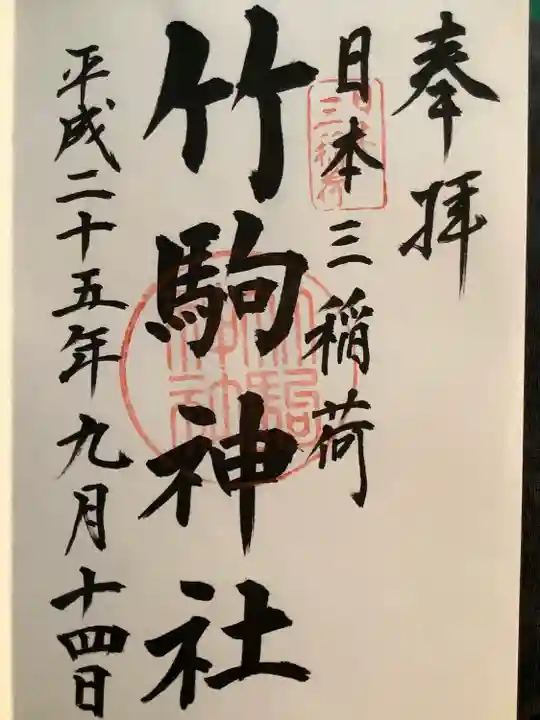 奉拝
日本三稲荷
竹駒神社
平成二十五年九月十四日
竹駒
神社